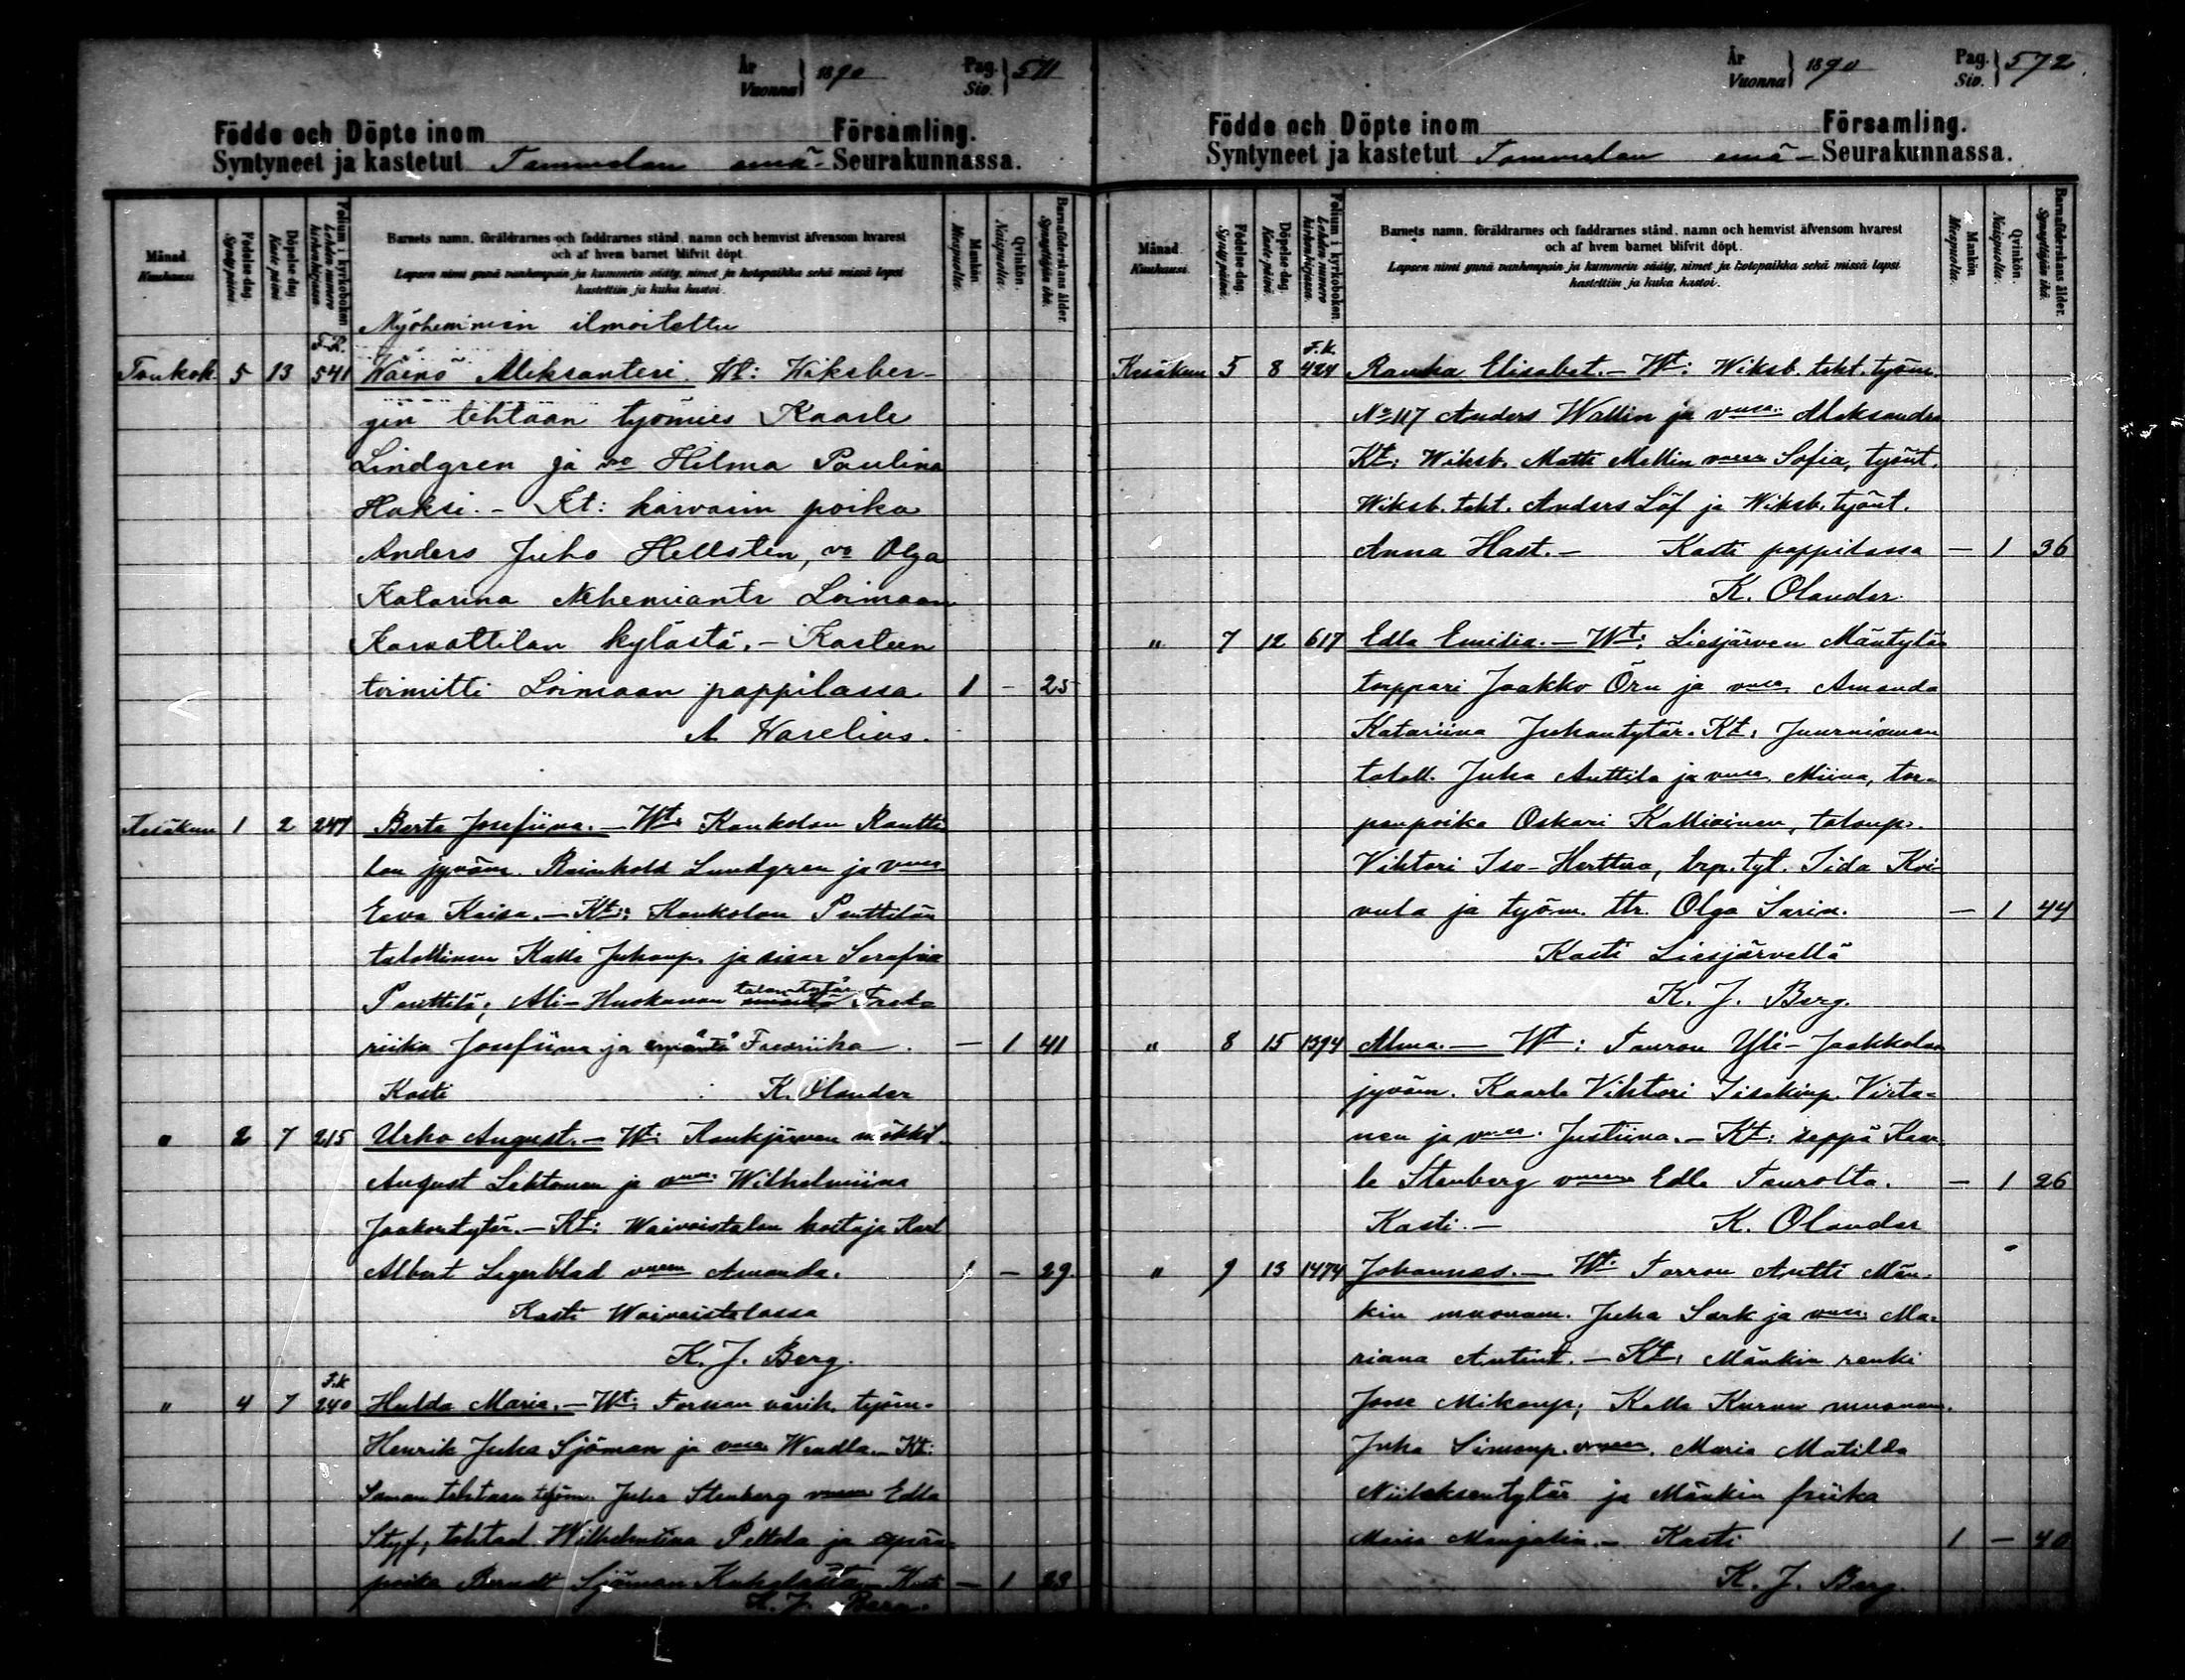 År
Vuonna } 1890
Pag.
Siv. } 571
Födde och Döpte inom Församling.
Syntyneet ja kastetut Tammelan emä- Seurakunnassa.
Månad
Kuukausi.
Födelse dag.
Synty päivä.
Döpelse dag.
Kaste päivä
Folium i kyrkoboken
Lehden numero kirkonkirjassa.
Barnets namn, föräldrarnes och faddrarnes stånd, namn och hemvist äfvensom hvarest
och af hvem barnet blifvit döpt.
Lapsen nimi ynnä vanhempain ja kummein sääty, nimet ja kotopaikka sekä missä lapsi
kastettiin ja kuka kastoi.
Mankön.
Miespuolia.
Qvinkön.
Naispuolia.
Barnaföderskans ålder.
Synnyttäjän ikä.
Myöhemmin ilmoitettu
F.K.
Toukok. 5 13 541 Wäinö Aleksanteri. Wt: Wiksber-
gin tehtaan työmies Kaarle
Lindgren ja vo Hilma Paulina
Haksi. - Kt: karvarin poika
Anders Juho Hellsten, vo Olga
Katarina Nehemiantr Loimaan
Karsattilan kylästä. - Kasteen
toimitti Loimaan pappilassa 1 - 25
A Warelius.
Kesäkuu 1 2 247 Berta Josefiina. - Wt: Kaukolan Rautti
lan jyväm. Reinhold Lundgren ja vmsa
Eeva Kaisa. - Kt: Kaukolan Penttilän
talollinen Kalle Juhanp. ja sisar Serafia
Penttilä, Ali-Huskanan talontytär Fred-
riika Josefiina ja emäntä Fredriika. - 1 41
Kasti K. Olander
" 2 7 215 Urho August. - Wt: Kaukjärven mökkil.
August Lehtonen ja vmsa Wilhelmiina
Jaakontytär. - Kt: Waivaistalon hoitaja Karl
Albert Lagerblad vmoen Amanda. 1 - 29.
Kasti Waivaistalossa
K. J. Berg.
F.K
" 4 7 240 Hulda Maria. - Wt: Forssan värik. työm.
Henrik Juha Sjöman ja vmsa Wendla. - Kt:
Saman tehtaan työm. Juha Stenberg vmoen Edla
Styf, tehtad. Wilhelmiina Peltola ja
poika Berndt Sjöman Kuhalasta. - Kasti - 1 23
K. J. Berg.
År
Vuonna } 1890
Pag.
Siv. } 572.
Födde och Döpte inom Församling.
Syntyneet ja kastetut Tammelan emä- Seurakunnassa.
Månad
Kuukausi.
Födelse dag.
Synty päivä.
Döpelse dag.
Kaste päivä.
Folium i kyrkoboken.
Lehden numero kirkonkirjassa.
Barnets namn, föräldrarnes och faddrarnes stånd, namn och hemvist äfvensom hvarest
och af hvem barnet blifvit döpt.
Lapsen nimi ynnä vanhempain ja kummein sääty, nimet ja kotopaikka sekä missä lapsi
kastettiin ja kuka kastoi.
Mankön.
Miespuolia.
Qvinkön.
Naispuolia.
Barnaföderskans ålder.
Synnyttäjän ikä.
F.K.
Kesäkuu 5 8 424 Rauha Elisabet. - Wt: Wiksb. teht. työm.
No 117 Anders Wallin ja vmsa Aleksandra
Kt: Wiksb. Matti Mellin vmoen Sofia, työnt.
Wiksb. teht. Anders Löf ja Wiksb. työnt.
Anna Hast. - Kasti pappilassa - 1 36
K. Olander.
" 7 12 617 Edla Emilia. - Wt: Liesjärven Mäntylän
torppari Jaakko Örn ja vmsa Amanda
Katariina Juhantytär. Kt:
taloll. Juha Anttila ja vmsa Miina, tor-
panpoika Oskari Kallioinen, talonp.
Vihtori Iso-Herttua, trp. tyt. Iida Koi-
vula ja työm. ttr. Olga Sarin. - 1 44
Kasti Liesjärvellä
K. J. Berg.
" 8 15 1394 Alma. - Wt: Tauron Yli-Jaakkolan
jyväm. Kaarle Vihtori Iisakinp. Virta-
nen ja vmsa Justiina. - Kt: seppä Kaar-
le Stenberg vmoen Edla Taurolta. - 1 26
Kasti. - K. Olander
" 9 13 1474 Johannes. - Wt: Torron Antti Män-
kin muonam. Juha Sark ja vmsa Ma-
riana Antint. - Kt: Mänkin renki
Joose Mikonp; Kalle Kurun muonam.
Juha Simonp. vmoen. Maria Matilda
Niilaksentytär ja Mänkin piika
Maria Mangelin. - Kasti 1 - 40
K. J. Berg.